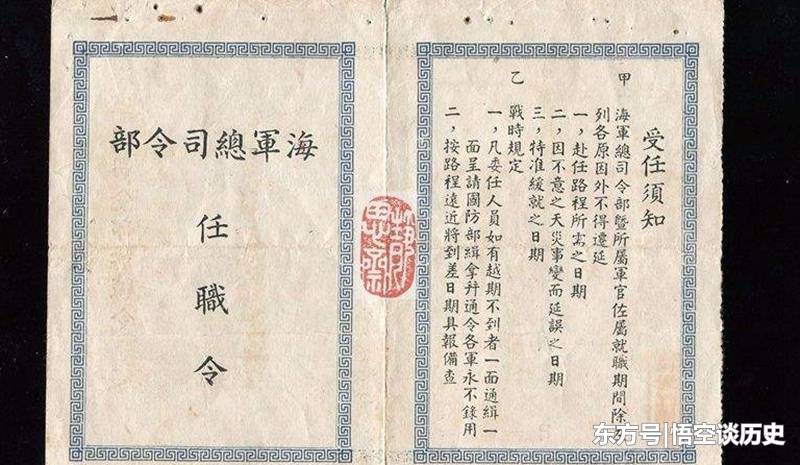 受任須知
甲
海軍總司令部暨所屬軍官佐屬就職期間除
列各原因外不得遷延
一，赴任路程所需之日期
二，因不意之天災事變而延誤之日期
三，特准緩就之日期
乙
戰時規定
一，凡委任人員如有越期不到者一面通緝一
面呈請國防部緝拿并通令各軍永不錄用
二，按路程遠近將到差日期具報備查
海軍總司令部
任職令
东方号|悟空谈历史